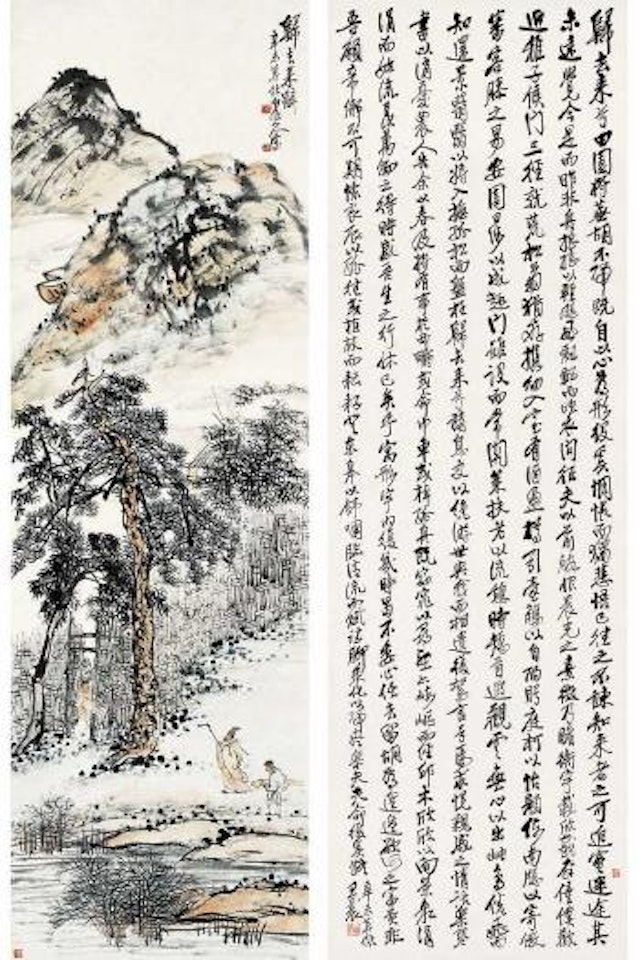 歸去來辭
歸去來兮田園將蕪胡不歸既自以心為形役奚惆悵而獨悲悟已往之不諫知來者之可追寔迷途其
未遠覺今是而昨非舟搖搖以輕颺風飄飄而吹衣問征夫以前路恨晨光之熹微乃瞻衡宇載欣載奔僮僕歡
迎稚子候門三徑就荒松菊猶存攜幼入室有酒盈樽引壺觴以自酌眄庭柯以怡顏倚南牕以寄傲
審容膝之易安園日涉以成趣門雖設而常關策扶老以流憩時矯首遐觀雲無心以出岫鳥倦飛
知還景翳翳以將入撫孤松而盤桓歸去來兮請息交以絕游世與我而相遺復駕言兮焉求悅親戚之情話樂琴
書以消憂農人告余以春及將有事於西疇或命巾車或棹孤舟既窈窕以尋壑亦崎嶇而經邱木欣欣以向榮泉涓
涓而始流羨萬物之得時感吾生之行休已矣乎寓形宇內復幾時曷不委心任去留胡為遑遑欲何之富貴非
吾願帝鄉不可期懷良辰以孤往或植杖而耘耔登東皋以舒嘯臨清流而賦詩聊乘化以歸盡樂夫天命復奚疑
辛未